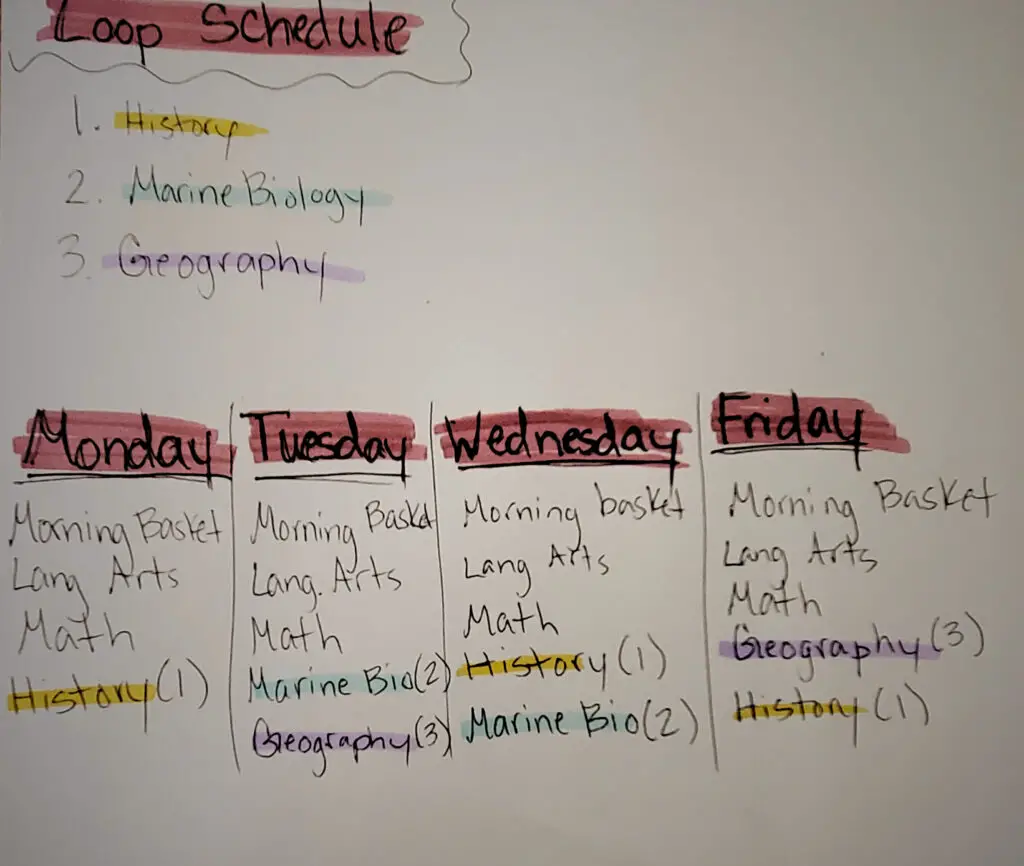 Loop Schedule
1. History
2. Marine Biology
3. Geography
Monday
Morning Basket
Lang Arts
Math
History (1)
Tuesday
Morning Basket
Lang. Arts
Math
Marine Bio (2)
Geography (3)
Wednesday
Morning basket
Lang Arts
Math
History (1)
Marine Bio (2)
Friday
Morning Basket
Lang Arts
Math
Geography (3)
History (1)